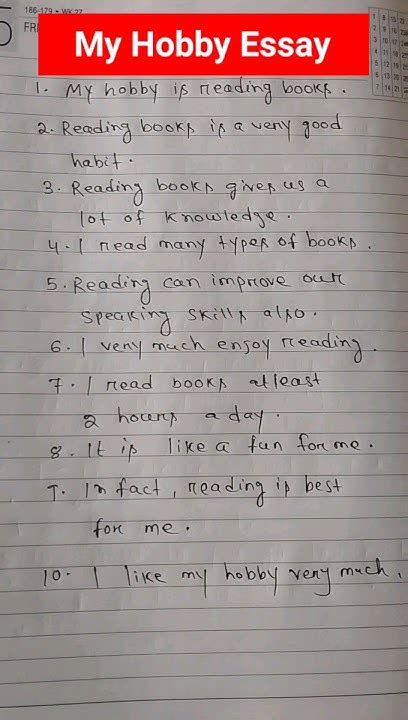 166-179 • WK 27
FRI
My Hobby Essay
1. My hobby is reading books.
2. Reading books is a very good
habit.
3. Reading books gives us a
lot of knowledge.
4. I read many types of books.
5. Reading can improve our
speaking skills also.
6. I very much enjoy reading.
7. I read books atleast
2 hours a day.
8. It is like a fun for me.
9. In fact, reading is best
for me.
10. I like my hobby very much.